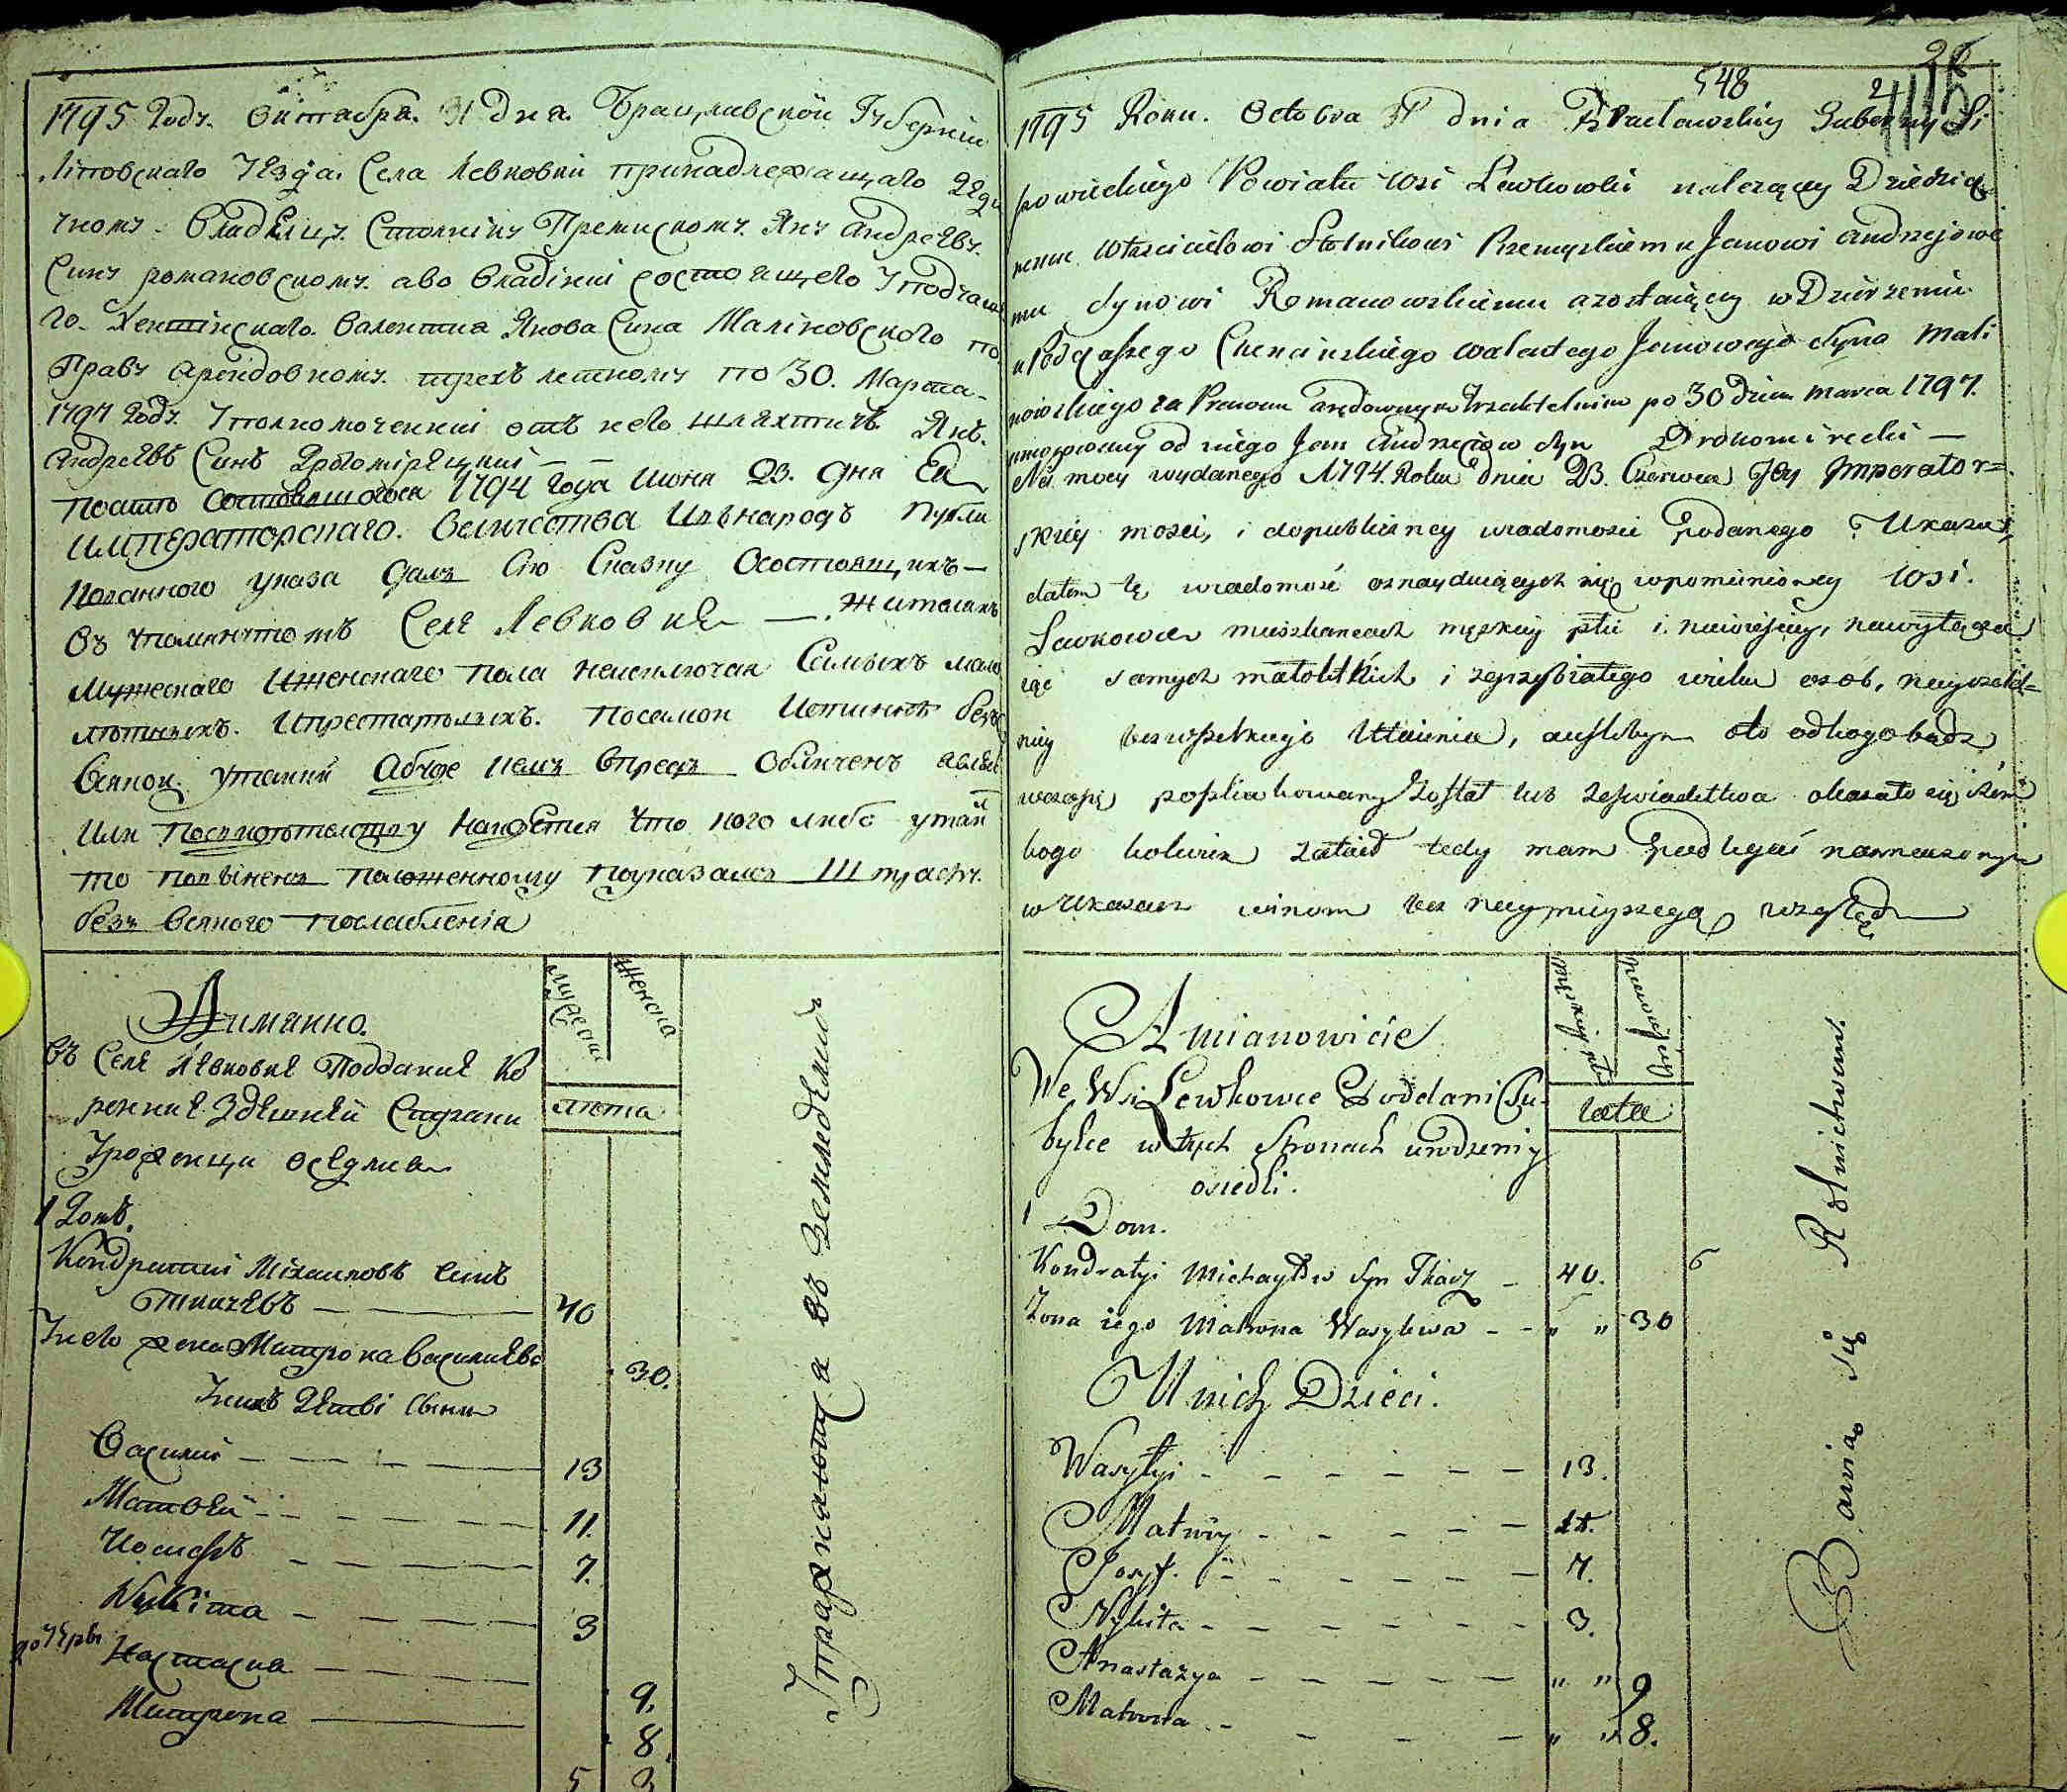 1795 Году. Октабра. 31 дна. Брацлавской Губерніи
Липовскаго Уезда. Села Левковки принадлежащаго Дѣди
чному. Владѣлцу. Столнику Премискому. Яну Андрѣеву.
Сину романовскому. аво владініи состоящего У подчаша
го. Хентінскаго. Валентия Янова Сина Маліновского по
Праву Арендовному. трехъ летному по 30. Марта
1797 Году. Уполномоченній отъ него шляхтичъ Янъ.
Андрѣевъ Синъ Дрогомірецкий
По силѣ состоявшагося 1794 Года Июня 23. дня Ея
Императорскаго. Величества Извнародъ Публи
кованного указа далъ Сію Сказку О состоящихъ
Въ упомянутомъ Селѣ Левковкѣ Жителяхъ
Мужескаго Иженскаго пола неисключая Самыхъ мало
лѣтныхъ. И престарѣлыхъ. По самой Истиннѣ безъ
Всякой утайки Абуде кемъ впредъ Обличенъ явлюсь
Или По свидѣтелству найдется что кого либо утаилъ
то повиненъ положенному По указамъ Штрафу.
безъ всякого послабленія
Аимянно.
въ Селѣ Левковкѣ Подданиѣ Ко
ренниѣ Здѣшнѣй Страни
Урожении осѣдлиѣ
мужеска
Женска
лѣта
1 Домъ.
Кондратий Міхаиловъ Синъ
Ткачѣвъ 40
У него жена Матрона Василиѣва 30.
У нихъ Дѣти Свѣни
Василий 13
Матвѣй 11.
Иосифъ 7.
Никита 3
дочѣри Настасия 9.
Матрона 8.
5 3
Упражнаютца въ Земледелии
548
1795 Roku. Octobra 31 dnia Bracławskiey Guberny Li
powieckiego Powiatu wsi Lewkowki należącey Dziedzicz
nemu Włascicielowi Stolnikowi Przemyskiemu Janowi Andrzejowe
mu Synowi Romanowskiemu a zostaiącey w Dzierzeniu
u Podczaszego Chęcinskiego Walentego Janowego Syna Mali
nowskiego za Prawem Arędownym Trzechletnim po 30 dzien Marca 1797.
umocowany od niego Jan Andrzeiow Syn Drohomirecki
Na mocy wydanego 1794. Roku dnia 23. Czerwca Jey Imperator=
skiey mosci, i do publiczney wiadomosci Podanego Ukazu,
dałem tę wiadomość o znayduiących się w pomienioney wsi.
Lewkowce mieszkancach męzkiey płci i niewiesciey, nie wyłącza
iąc samych małoletkich i zgrzybiałego wieku osob, nayrzetel=
niey bez wszelkiego utaienia, a jesliby kto od kogo bądz
poszlakowany został lub ze swiadectwa okazało się
kogo kolwiek zataił tedy mam Podlegać naznaczonym
w Ukazach winom bez naymnieyszego względu
A mianowicie
We Wsi Lewkowce Poddani Tu
bylce w tych Stronach urodzeni y
osiedli.
lata
1 Dom.
Kondratyi Michayłow Syn Tkacz 40. 6
Zona iego Matrona Wasylewa „ „ 30
U nich Dzieci.
Wasylyi 13.
Matwiy 11.
Josyf. 7.
Nykita 3.
Anastazya „ „ 9
Matrona „ „ 8.
Bawią się Rolnictwem.